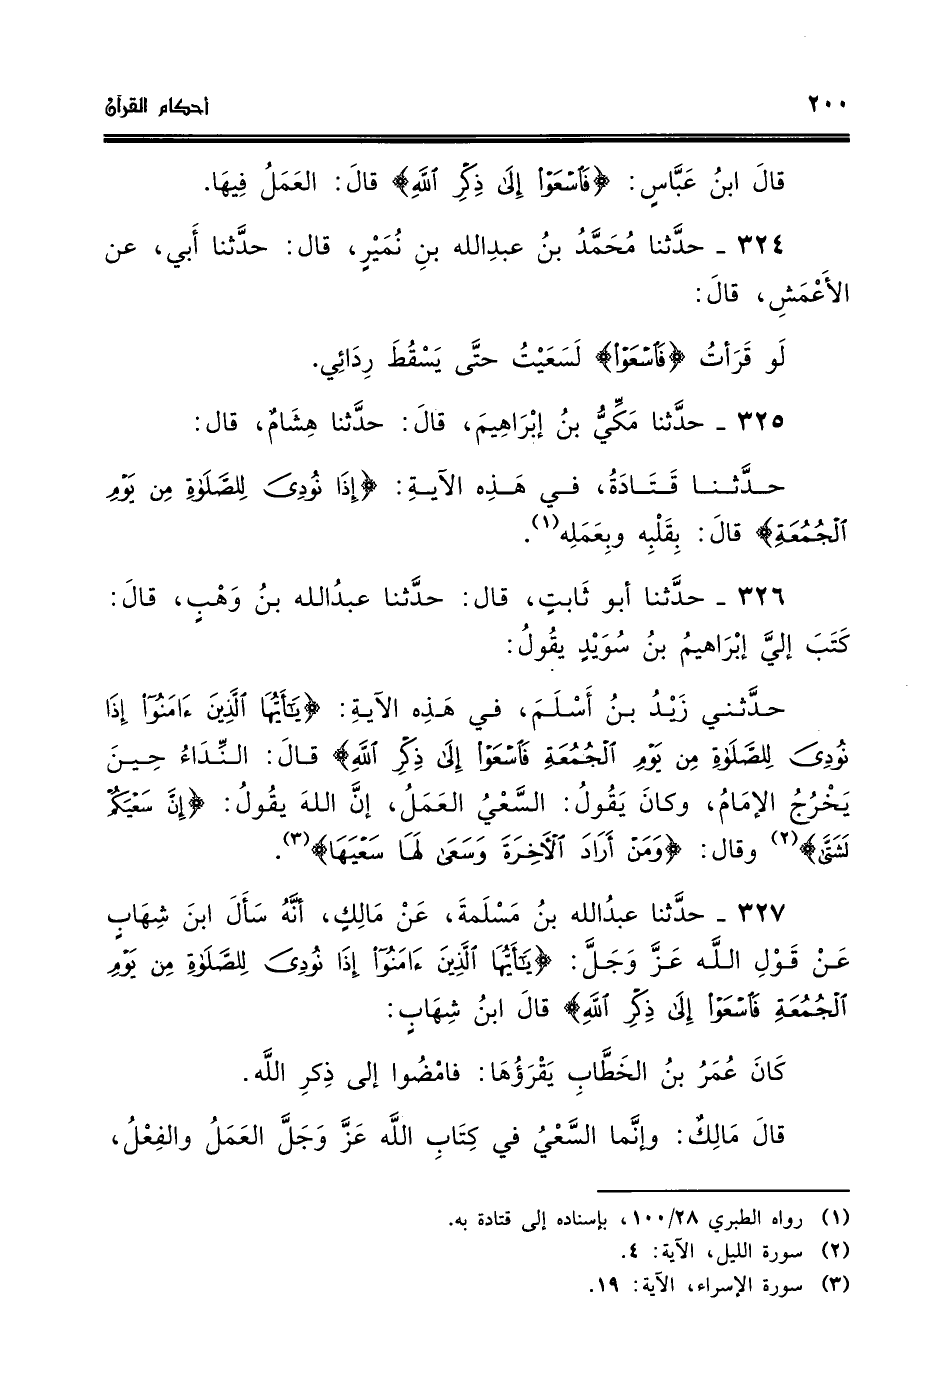 ٢٠٠ أحكام القرآن
قالَ ابنُ عَبَّاسٍ: ﴿فَٱسْعَوْا۟ إِلَىٰ ذِكْرِ ٱللَّهِ﴾ قالَ: العَمَلُ فِيهَا.
٣٢٤ ـ حدَّثنا مُحَمَّدُ بنُ عبدِالله بنِ نُمَيْرٍ، قال: حدَّثنا أَبي، عن
الأَعْمَشِ، قالَ:
لَو قَرَأتُ ﴿فَٱسْعَوْا۟﴾ لَسَعَيْتُ حتَّى يَسْقُطَ رِدَائِي.
٣٢٥ ـ حدَّثنا مَكِّيُّ بنُ إبْرَاهِيمَ، قالَ: حدَّثنا هِشَامٌ، قال:
حـدَّثـنـا قَـتَـادَةُ، فـي هَـذِه الآيـةِ: ﴿إِذَا نُودِىَ لِلصَّلَوٰةِ مِن يَوْمِ
ٱلْجُمُعَةِ﴾ قالَ: بِقَلْبِه وبِعَمَلِه(١).
٣٢٦ ـ حدَّثنا أبو ثَابتٍ، قال: حدَّثنا عبدُالله بنُ وَهْبٍ، قالَ:
كَتَبَ إليَّ إبْرَاهيمُ بنُ سُوَيْدٍ يقُولُ:
حدَّثـني زَيْـدُ بـنُ أَسْلَـمَ، فـي هَـذِه الآيـةِ: ﴿يَٰٓأَيُّهَا ٱلَّذِينَ ءَامَنُوٓا۟ إِذَا
نُودِىَ لِلصَّلَوٰةِ مِن يَوْمِ ٱلْجُمُعَةِ فَٱسْعَوْا۟ إِلَىٰ ذِكْرِ ٱللَّهِ﴾ قـالَ: الـنِّدَاءُ حِـينَ
يَخْرُجُ الإمَامُ، وكانَ يَقُولُ: السَّعْيُ العَمَلُ، إنَّ اللهَ يقُولُ: ﴿إِنَّ سَعْيَكُمْ
لَشَتَّىٰ﴾(٢) وقال: ﴿وَمَنْ أَرَادَ ٱلْأَخِرَةَ وَسَعَىٰ لَهَا سَعْيَهَا﴾(٣).
٣٢٧ ـ حدَّثنا عبدُالله بنُ مَسْلَمةَ، عَنْ مَالِكٍ، أنَّهُ سَأَلَ ابنَ شِهَابٍ
عَـنْ قَـوْلِ اللَّـه عَـزَّ وَجَـلَّ: ﴿يَٰٓأَيُّهَا ٱلَّذِينَ ءَامَنُوٓا۟ إِذَا نُودِىَ لِلصَّلَوٰةِ مِن يَوْمِ
ٱلْجُمُعَةِ فَٱسْعَوْا۟ إِلَىٰ ذِكْرِ ٱللَّهِ﴾ قالَ ابنُ شِهَابٍ:
كَانَ عُمَرُ بنُ الخَطَّابِ يَقْرَؤُهَا: فامْضُوا إلى ذِكرِ اللَّه.
قالَ مَالِكٌ: وإنَّما السَّعْيُ في كِتَابِ اللَّه عَزَّ وَجَلَّ العَمَلُ والفِعْلُ،
(١) رواه الطبري ١٠٠/٢٨، بإسناده إلى قتادة به.
(٢) سورة الليل، الآية: ٤.
(٣) سورة الإسراء، الآية: ١٩.